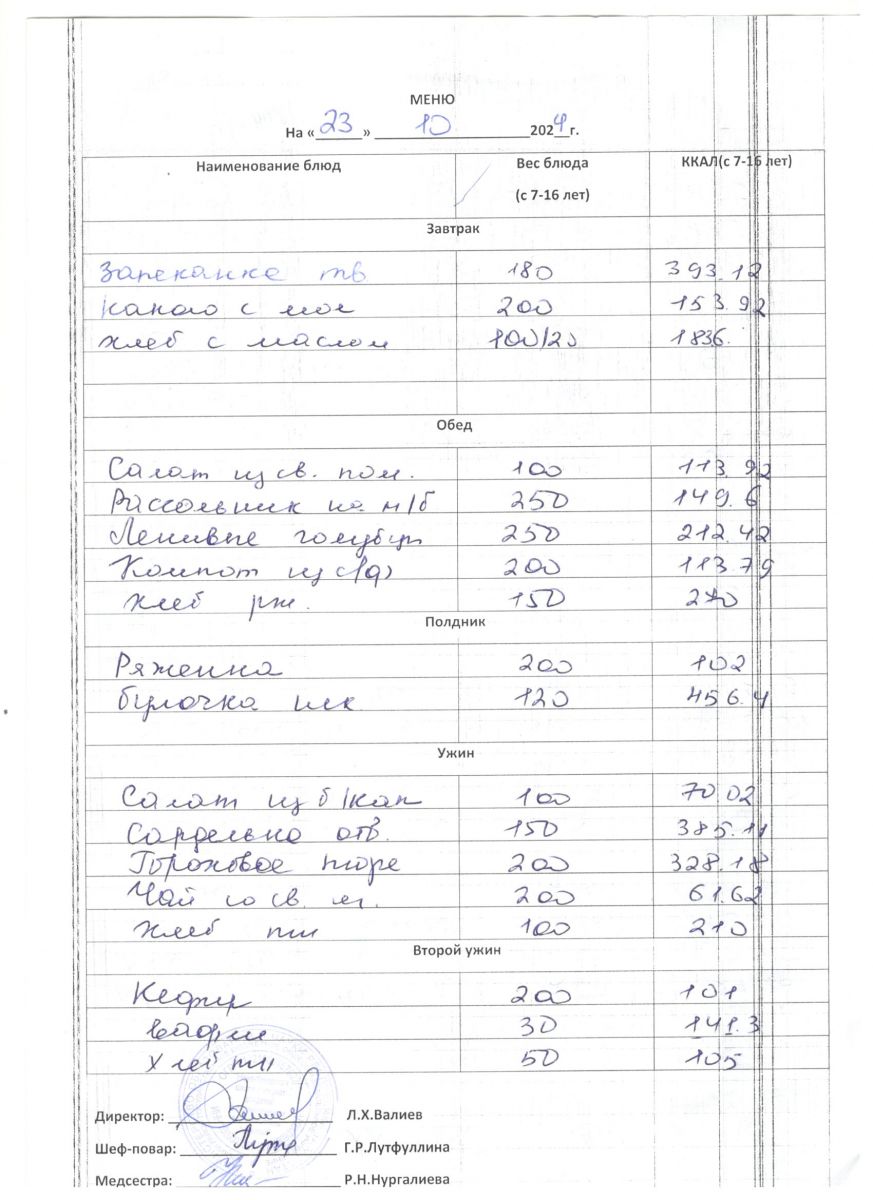 МЕНЮ
На «23» 10 2024г.
Наименование блюд Вес блюда (с 7-16 лет) ККАЛ(с 7-16 лет)
Завтрак
Запеканке тв 180 393.12
какао с мол 200 153.92
хлеб с маслом 100/20 1836.
Обед
Салат из св. пом. 100 113.92
Рассольник на м/б 250 149.6
Ленивые голубцы 250 212.42
Компот из с/ф 200 113.79
хлеб рж. 150 270
Полдник
Ряженка 200 102
булочка шк 120 456.4
Ужин
Салат из б/кап 100 70.02
Сарделька отв. 150 385.11
Гороховое пюре 200 328.18
Чай со св. яг. 200 61.62
Хлеб пш 100 210
Второй ужин
Кефир 200 101
вафли 30 141.3
Хлеб пш 50 105
Директор: Л.Х.Валиев
Шеф-повар: Г.Р.Лутфуллина
Медсестра: Р.Н.Нургалиева